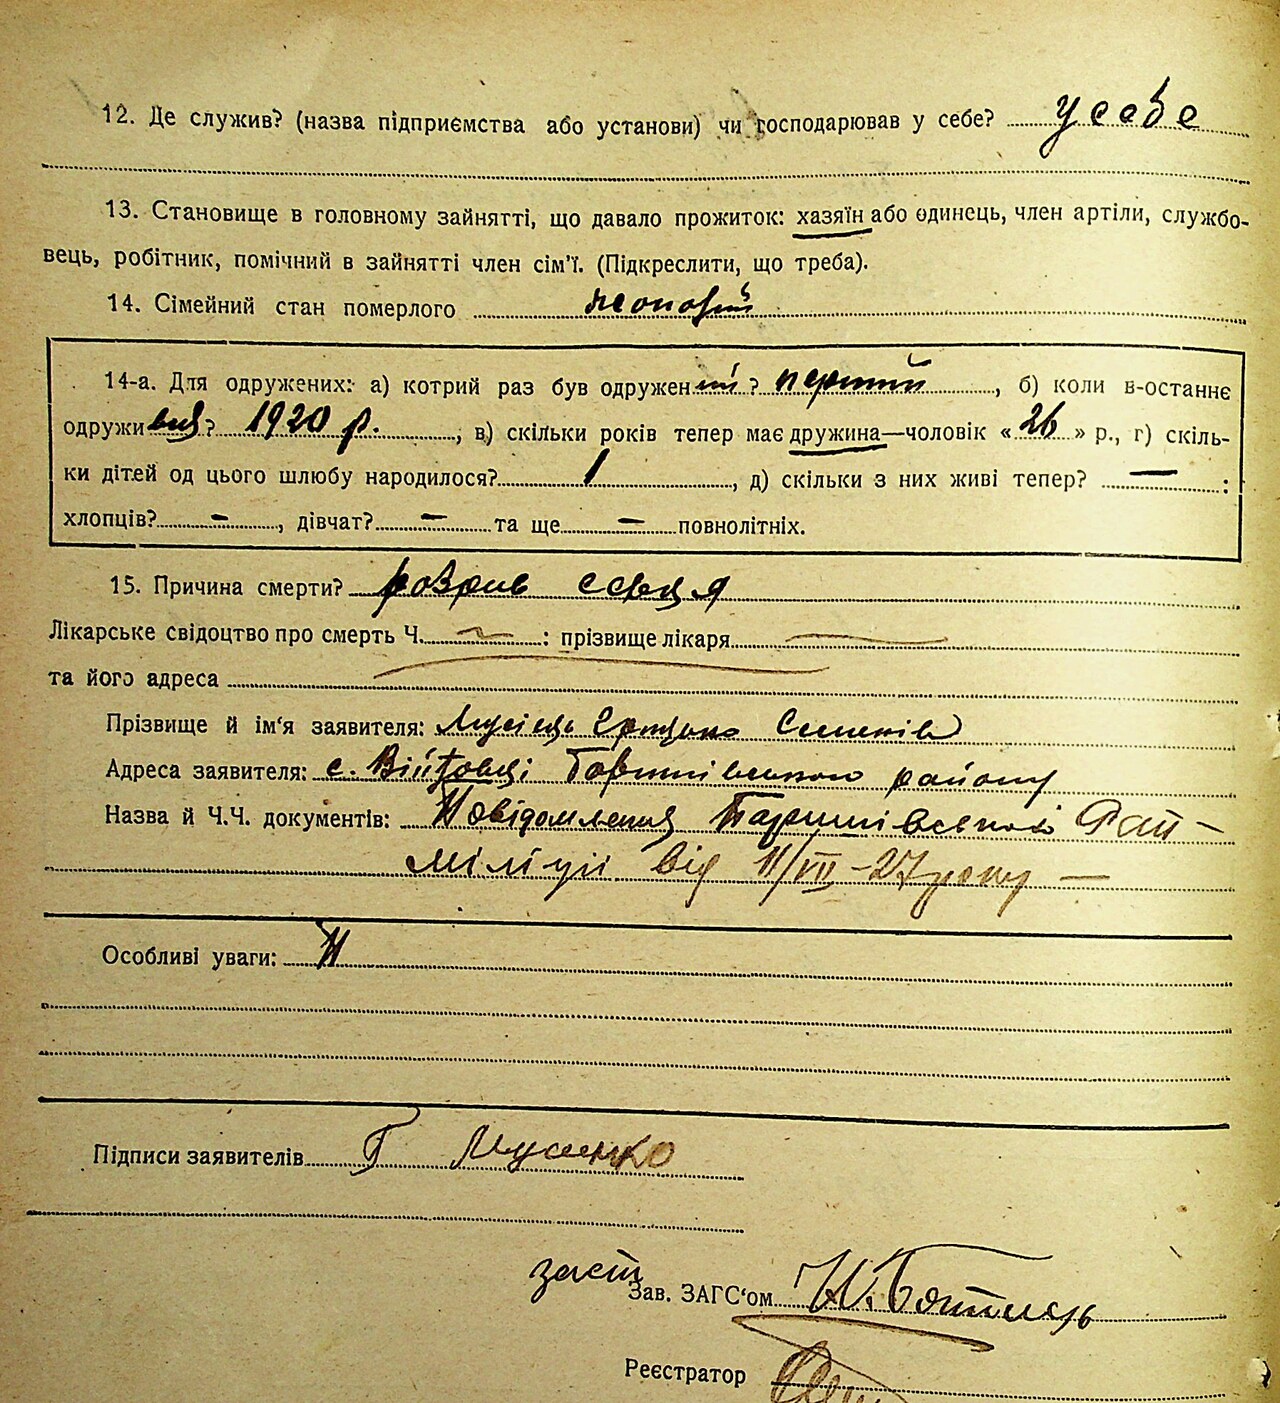 12. Де служив? (назва підприємства або установи) чи господарював у себе? у себе
13. Становище в головному зайнятті, що давало прожиток: хазяїн або одинець, член артіли, службо-
вець, робітник, помічний в зайнятті член сім'ї. (Підкреслити, що треба).
14. Сімейний стан померлого
14-а. Для одружених: а) котрий раз був одружений? перший, б) коли в-останнє
одружився? 1920 р., в) скільки років тепер має дружина—чоловік «26» р., г) скіль-
ки дітей од цього шлюбу народилося? 1, д) скільки з них живі тепер? — :
хлопців? —, дівчат? — та ще — повнолітніх.
15. Причина смерти? розрив серця
Лікарське свідоцтво про смерть Ч. — : прізвище лікаря —
та його адреса
Прізвище й ім'я заявителя: Семенів
Адреса заявителя: с. Війтовці Баришівського району
Назва й Ч.Ч. документів: Повідомлення Баришівської Рай-
міліції від 11/VII-27 року —
Особливі уваги:
Підписи заявителів Г Мусієнко
заст Зав. ЗАГС'ом
Реєстратор